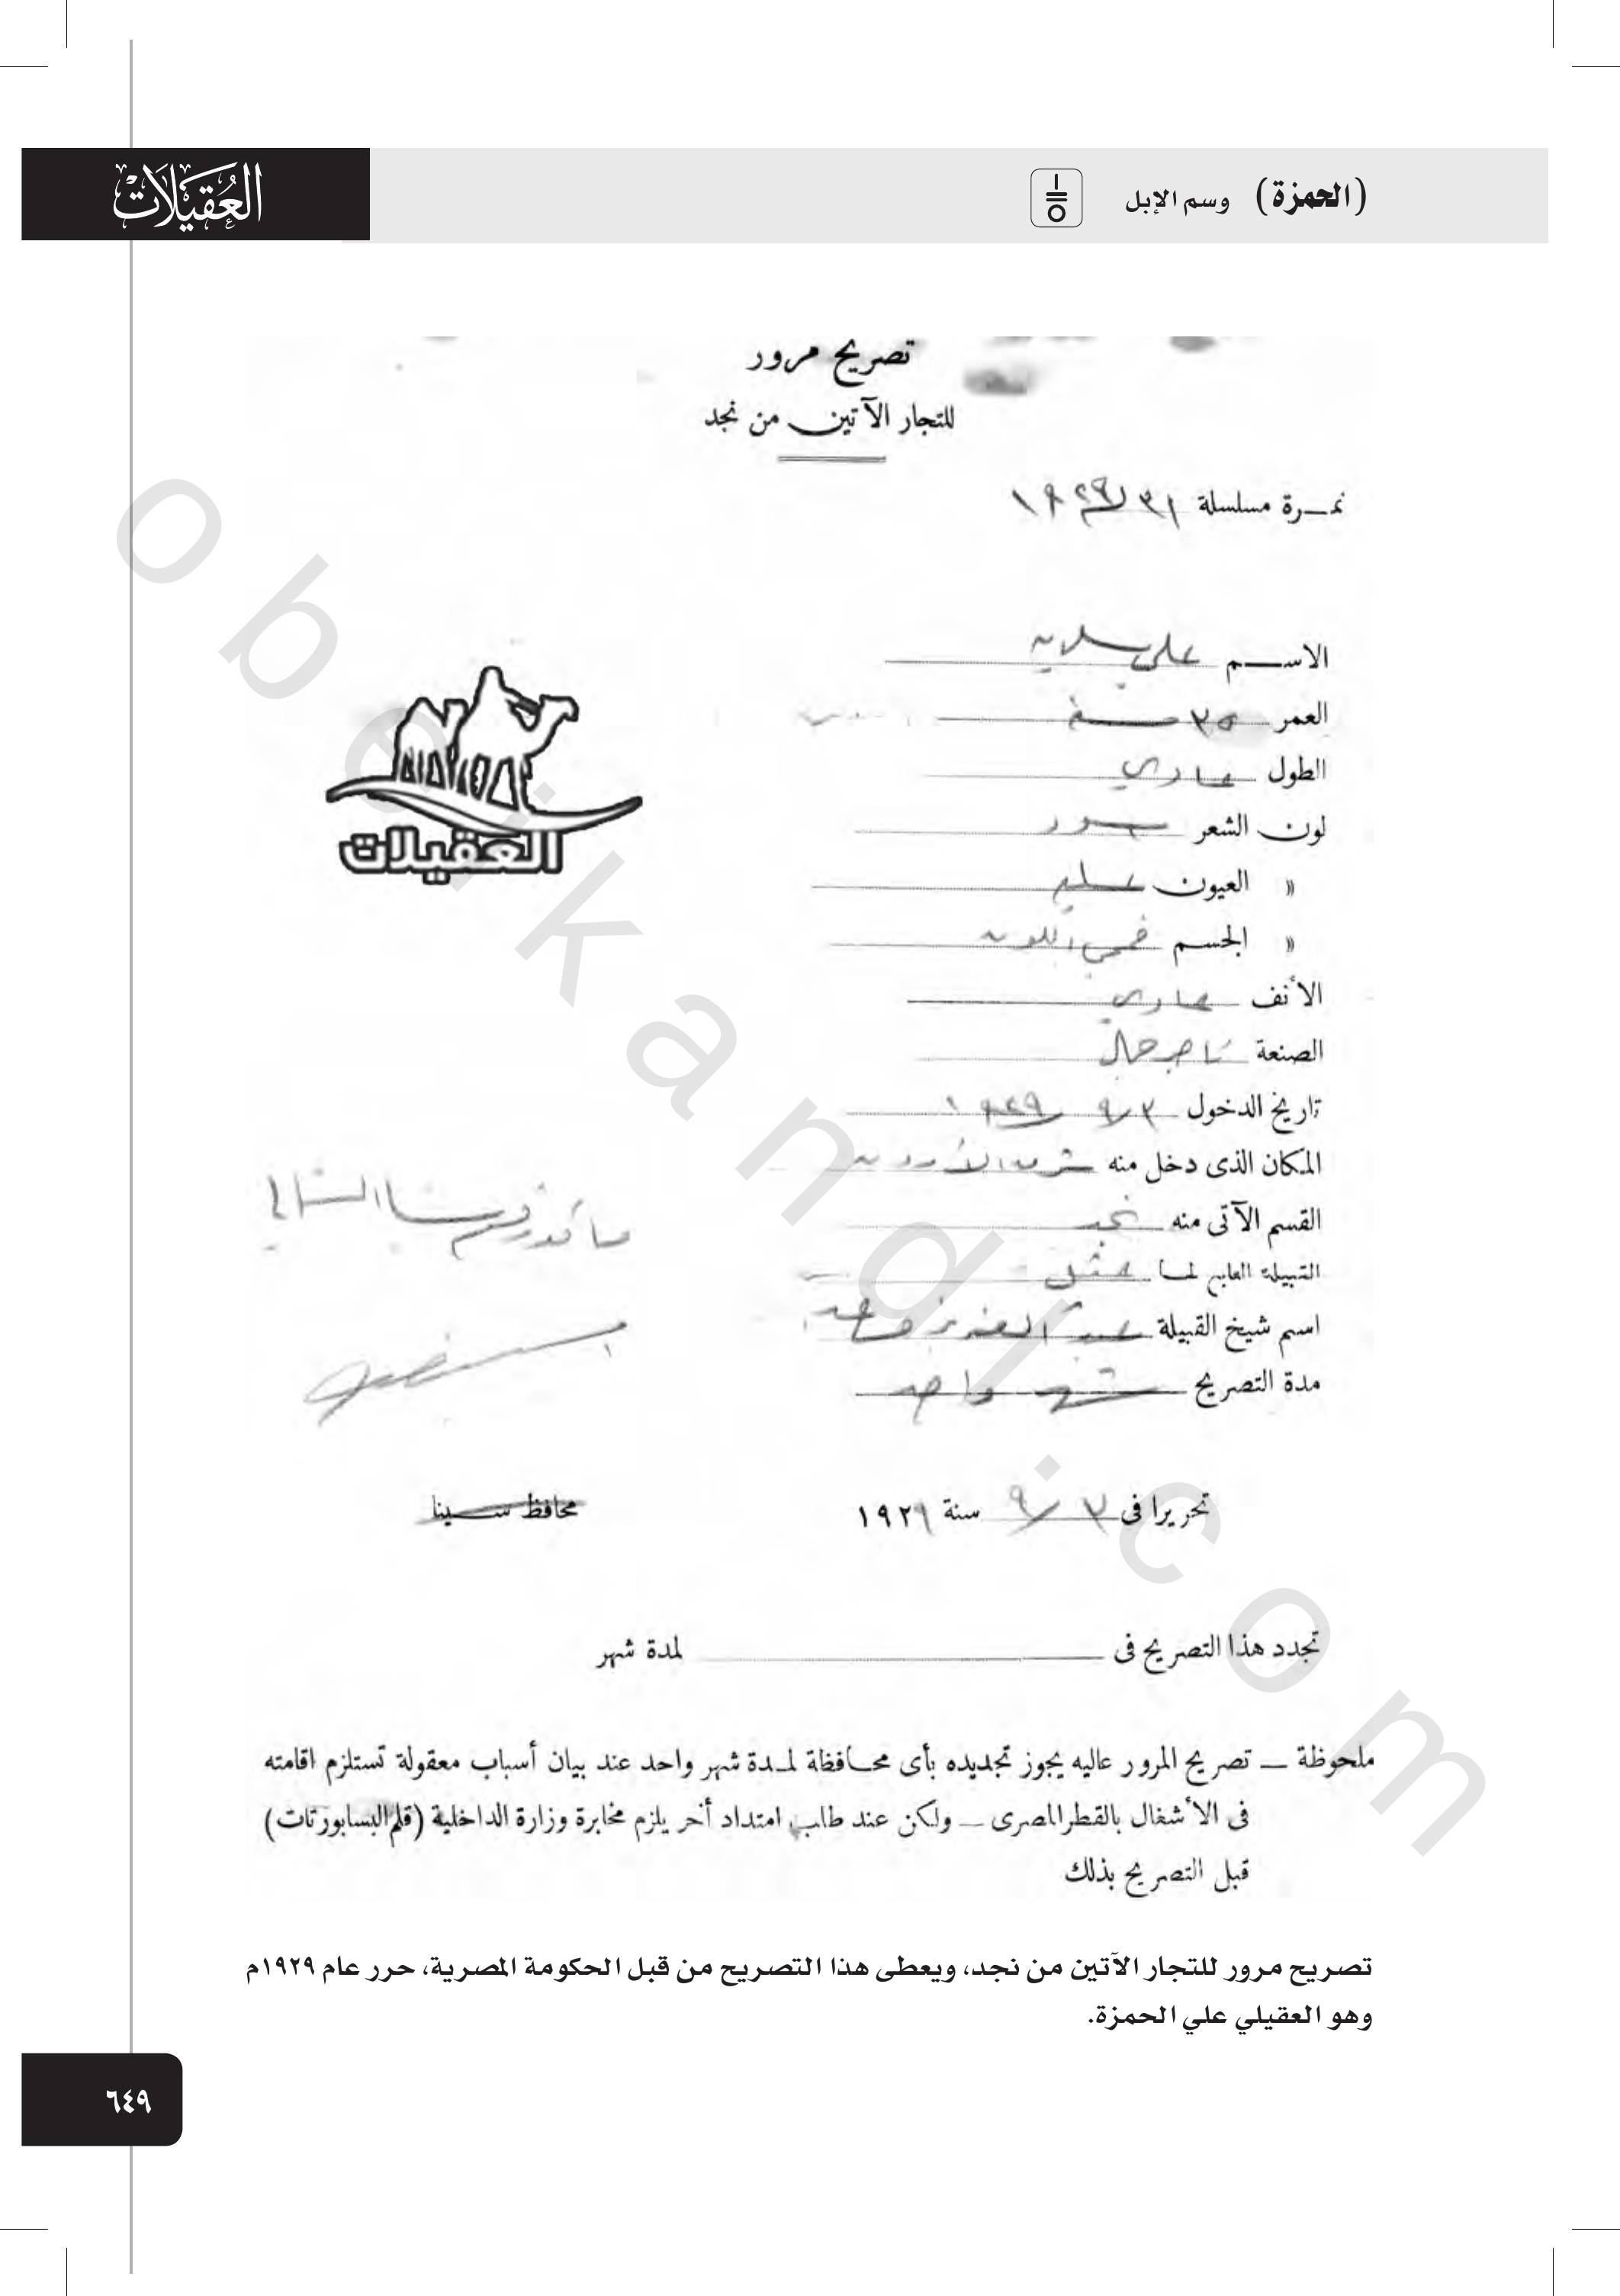 العقيلات
(الحمزة) وسم الإبل
تصريح مرور
للتجار الآتين من نجد
نمرة مسلسلة ٣١/١٩٢٩
الاسم علي سلامه
العمر ٣٥ سنة
الطول عادي
لون الشعر اسود
« العيون
« الجسم قمحي اللون
الأنف عادي
الصنعة تاجر جمال
تاريخ الدخول ٣/٩/١٩٢٩
المكان الذى دخل منه شرق الأردن
القسم الآتى منه نجد
القبيلة التابع لها
اسم شيخ القبيلة عبد العزيز
مدة التصريح شهر واحد
العقيلات
مأمور قسم سينا الشمالي
تحريرا فى ٣/٩ سنة ١٩٢٩
محافظ سينا
تجدد هذا التصريح فى لمدة شهر
ملحوظة — تصريح المرور عاليه يجوز تجديده بأى محافظة لمدة شهر واحد عند بيان أسباب معقولة تستلزم اقامته
فى الأشغال بالقطر المصرى — ولكن عند طلب امتداد أخر يلزم مخابرة وزارة الداخلية (قلم البسابورتات)
قبل التصريح بذلك
تصريح مرور للتجار الآتين من نجد، ويعطى هذا التصريح من قبل الحكومة المصرية، حرر عام ١٩٢٩م
وهو العقيلي علي الحمزة.
٦٤٩
obeikandl.com